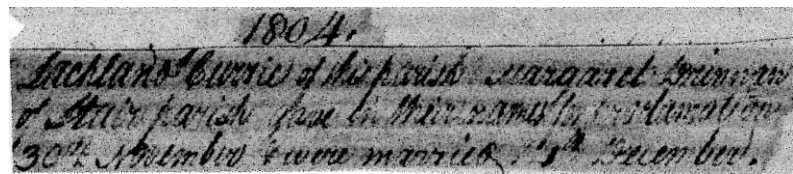 1804.
Lachland Currie of this parish Margaret Drinnan
of Stair parish gave in their names for proclamation
30th November & were married December.